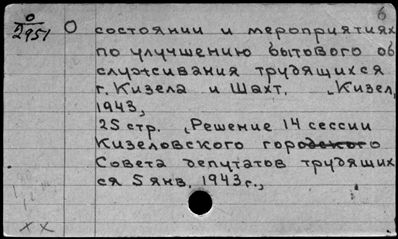 6
0
2951
О состоянии и мероприятиях
по улучшению бытового об
служивания трудящихся
г. Кизела и Шахт. „Кизел,
1943,
25 стр. „Решение 14 сессии
Кизеловского городского
Совета депутатов трудящих
ся 5 янв. 1943 г.„
хх